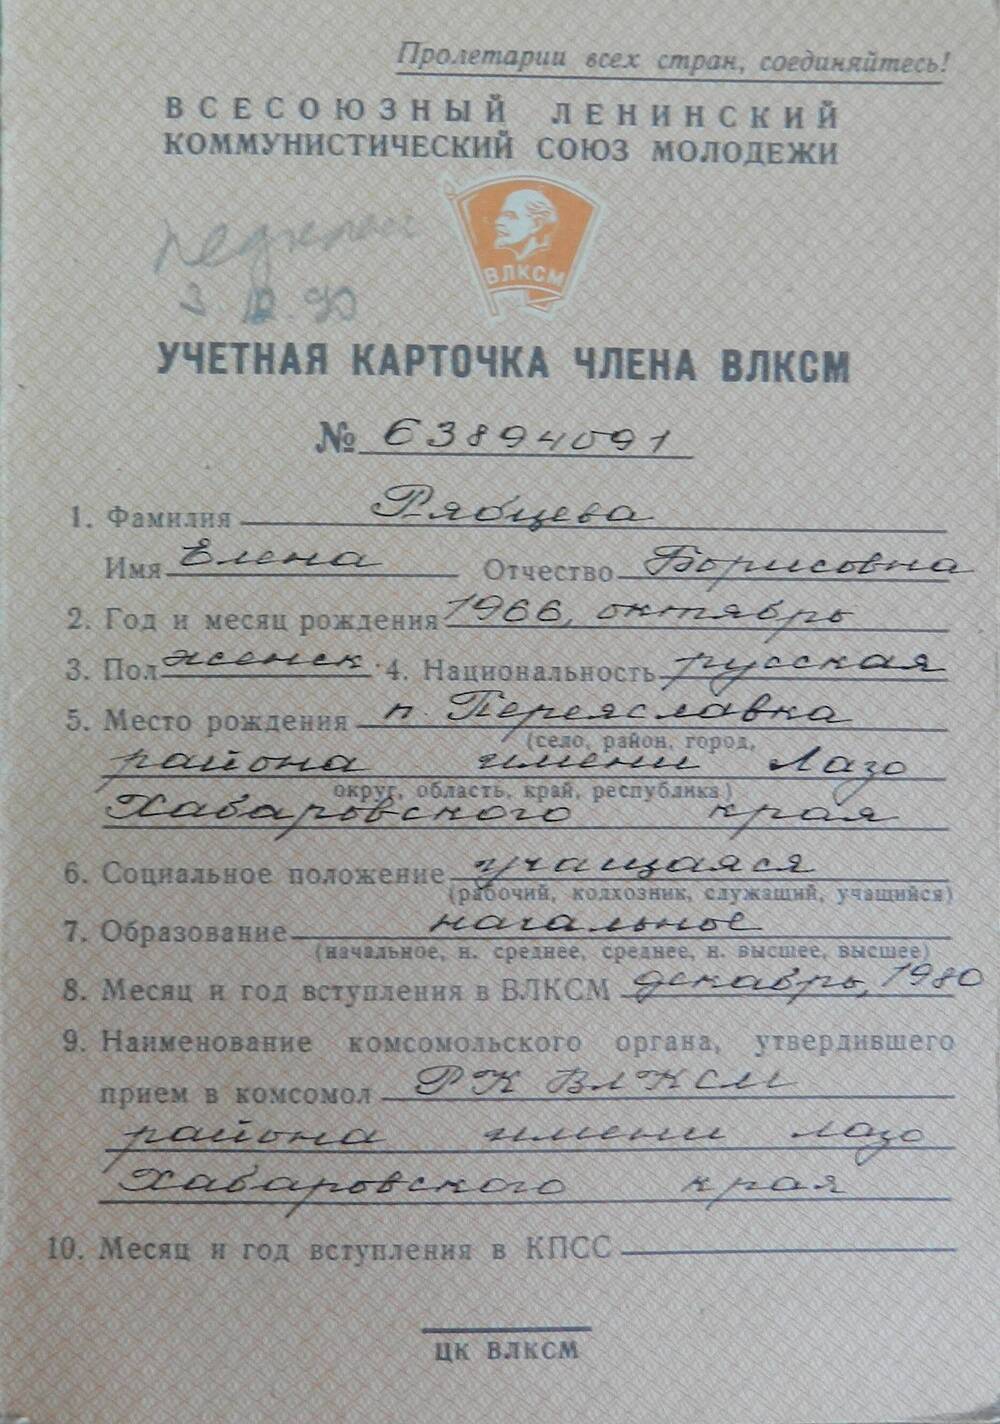 Пролетарии всех стран, соединяйтесь!
ВСЕСОЮЗНЫЙ ЛЕНИНСКИЙ
КОММУНИСТИЧЕСКИЙ СОЮЗ МОЛОДЕЖИ
ВЛКСМ
УЧЕТНАЯ КАРТОЧКА ЧЛЕНА ВЛКСМ
№ 63894091
1. Фамилия Рябцева
Имя Елена Отчество Борисовна
2. Год и месяц рождения 1966, октябрь
3. Пол женск. 4. Национальность русская
5. Место рождения п. Переяславка
(село, район, город,
района имени Лазо
округ, область, край, республика)
Хабаровского края
6. Социальное положение учащаяся
(рабочий, колхозник, служащий, учащийся)
7. Образование начальное
(начальное, н. среднее, среднее, н. высшее, высшее)
8. Месяц и год вступления в ВЛКСМ декабрь, 1980
9. Наименование комсомольского органа, утвердившего
прием в комсомол РК ВЛКСМ
района имени Лазо
Хабаровского края
10. Месяц и год вступления в КПСС
ЦК ВЛКСМ